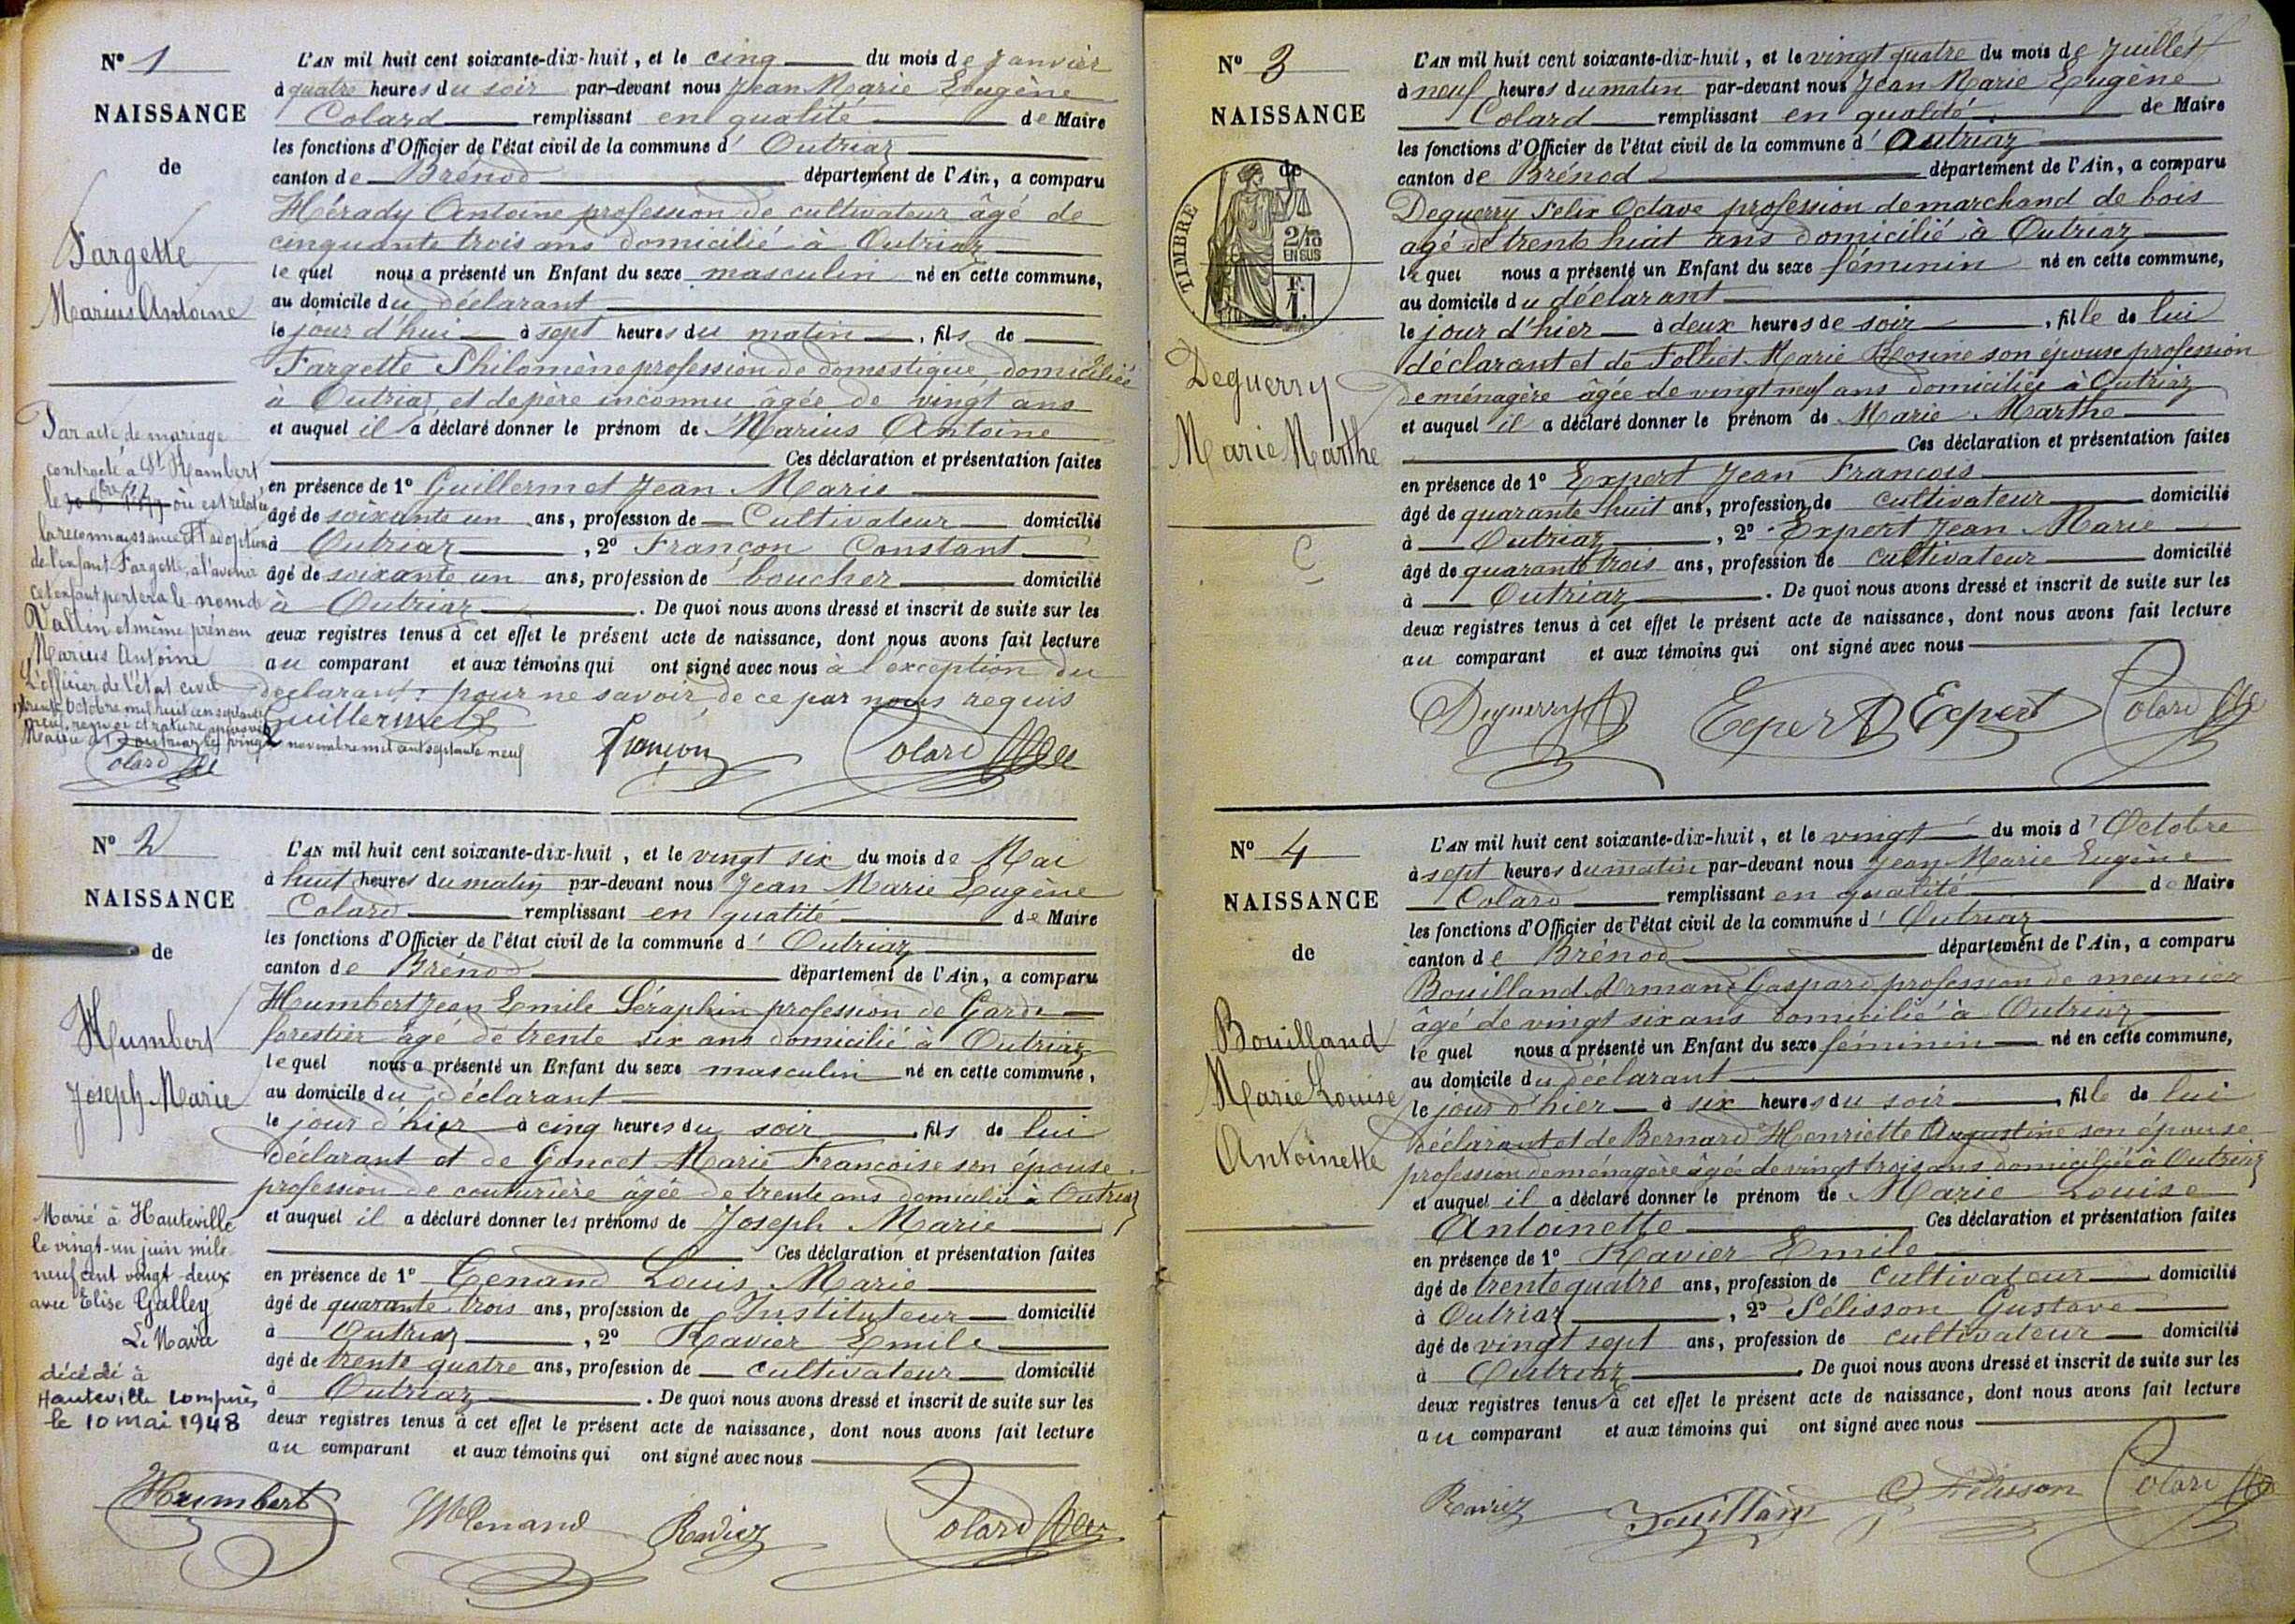 N° 1
NAISSANCE
de
Fargette
Marius Antoine
Par acte de mariage
contracté à St Rambert
le où est relatée
la reconnaissance et l'adoption
de l'enfant Fargette, à l'avenir
cet enfant portera le nom de
Vallin et même prénom
Marius Antoine
L'officier de l'état civil
trente octobre mil huit cent septante
neuf, renvoi et rature approuvés
Mairie d'Outriaz le vingt novembre mil huit cent septante neuf
Colard
L'AN mil huit cent soixante-dix-huit, et le cinq du mois de Janvier
à quatre heures du soir par-devant nous Jean Marie Eugène
Colard remplissant en qualité de Maire
les fonctions d'Officier de l'état civil de la commune d' Outriaz
canton de Brénod département de l'Ain, a comparu
Hérady Antoine profession de cultivateur âgé de
cinquante trois ans domicilié à Outriaz
le quel nous a présenté un Enfant du sexe masculin né en cette commune,
au domicile du déclarant
le jour d'hui à sept heures du matin, fils de
Fargette Philomène profession de domestique domiciliée
à Outriaz et de père inconnu âgée de vingt ans
et auquel il a déclaré donner le prénom de Marius Antoine
Ces déclaration et présentation faites
en présence de 1° Guillermet Jean Marie
âgé de soixante un ans, profession de Cultivateur domicilié
à Outriaz, 2° Françon Constant
âgé de soixante un ans, profession de boucher domicilié
à Outriaz. De quoi nous avons dressé et inscrit de suite sur les
deux registres tenus à cet effet le présent acte de naissance, dont nous avons fait lecture
au comparant et aux témoins qui ont signé avec nous à l'exception du
déclarant : pour ne savoir de ce par nous requis
Guillermet Françon Colard
N° 2
NAISSANCE
de
Humbert
Joseph Marie
Marié à Hauteville
le vingt-un juin mile
neuf cent vingt-deux
avec Elise Galley
Le Maire
décédé à
Hauteville Lompnès
le 10 mai 1948
L'AN mil huit cent soixante-dix-huit, et le vingt six du mois de Mai
à huit heures du matin par-devant nous Jean Marie Eugène
Colard remplissant en qualité de Maire
les fonctions d'Officier de l'état civil de la commune d' Outriaz
canton de Brénod département de l'Ain, a comparu
Humbert Jean Emile Séraphin profession de Garde
forestier âgé de trente six ans domicilié à Outriaz
le quel nous a présenté un Enfant du sexe masculin né en cette commune,
au domicile du déclarant
le jour d'hier à cinq heures du soir, fils de lui
déclarant et de Goncet Marie Francoise son épouse
profession de couturière âgée de trente ans domiciliée à Outriaz
et auquel il a déclaré donner les prénoms de Joseph Marie
Ces déclaration et présentation faites
en présence de 1° Tenand Louis Marie
âgé de quarante trois ans, profession de Instituteur domicilié
à Outriaz, 2° Ravier Emile
âgé de trente quatre ans, profession de cultivateur domicilié
à Outriaz. De quoi nous avons dressé et inscrit de suite sur les
deux registres tenus à cet effet le présent acte de naissance, dont nous avons fait lecture
au comparant et aux témoins qui ont signé avec nous
Humbert Tenand Ravier Colard
N° 3
NAISSANCE
de
TIMBRE
2/10
EN SUS
F.
1.
Deguerry
Marie Marthe
C
L'AN mil huit cent soixante-dix-huit, et le vingt quatre du mois de Juillet
à neuf heures du matin par-devant nous Jean Marie Eugène
Colard remplissant en qualité de Maire
les fonctions d'Officier de l'état civil de la commune d' Outriaz
canton de Brénod département de l'Ain, a comparu
Deguerry Felix Octave profession de marchand de bois
agé de trente huit ans domicilié à Outriaz
le quel nous a présenté un Enfant du sexe féminin né en cette commune,
au domicile du déclarant
le jour d'hier à deux heures de soir, fille de lui
déclarant et de Folliet Marie Rosine son épouse profession
de ménagère âgée de vingt neuf ans domiciliée à Outriaz
et auquel il a déclaré donner le prénom de Marie Marthe
Ces déclaration et présentation faites
en présence de 1° Expert Jean Francois
âgé de quarante huit ans, profession de cultivateur domicilié
à Outriaz, 2° Expert Jean Marie
âgé de quarante trois ans, profession de cultivateur domicilié
à Outriaz. De quoi nous avons dressé et inscrit de suite sur les
deux registres tenus à cet effet le présent acte de naissance, dont nous avons fait lecture
au comparant et aux témoins qui ont signé avec nous
Deguerry Expert Expert Colard
N° 4
NAISSANCE
de
Bouilland
Marie Louise
Antoinette
L'AN mil huit cent soixante-dix-huit, et le vingt du mois d' Octobre
à sept heures du matin par-devant nous Jean Marie Eugène
Colard remplissant en qualité de Maire
les fonctions d'Officier de l'état civil de la commune d' Outriaz
canton de Brénod département de l'Ain, a comparu
Bouilland Armand Gaspard profession de meunier
âgé de vingt six ans domicilié à Outriaz
le quel nous a présenté un Enfant du sexe féminin né en cette commune,
au domicile du déclarant
le jour d'hier à six heures du soir, fille de lui
déclarant et de Bernard Henriette Augustine son épouse
profession de ménagère âgée de vingt trois ans domiciliée à Outriaz
et auquel il a déclaré donner le prénom de Marie Louise
Antoinette Ces déclaration et présentation faites
en présence de 1° Ravier Emile
âgé de trente quatre ans, profession de cultivateur domicilié
à Outriaz, 2° Pélisson Gustave
âgé de vingt sept ans, profession de cultivateur domicilié
à Outriaz. De quoi nous avons dressé et inscrit de suite sur les
deux registres tenus à cet effet le présent acte de naissance, dont nous avons fait lecture
au comparant et aux témoins qui ont signé avec nous
Ravier Bouilland Pélisson Colard